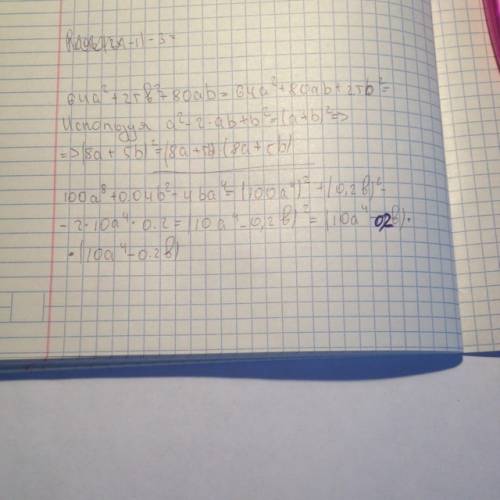 64a²+25b²+80ab=64a²+80ab+25b²=
Используя a²-2·ab+b²=(a+b)²=>
=>(8a+5b)²=(8a+5b)(8a+5b)
100a⁸+0.04b²-4ba⁴=(100a⁴)²+(0,2b)²-
-2·10a⁴·0.2=(10a⁴-0,2b)²=(10a⁴-02b)·
·(10a⁴-0.2b)